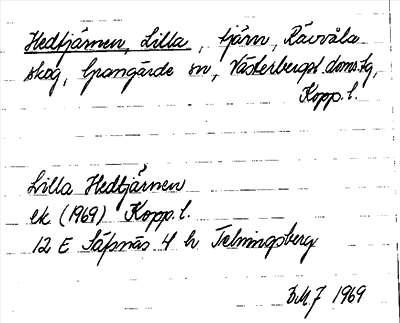 Hedtjärnen, Lilla, tjärn, Rävvåla
skog, Grangärde sn, Västerbergsl. doms.tg,
Kopp. l.
Lilla Hedtjärnen
ek (1969) Kopp. l.
12 E Säfsnäs 4 h Telningsberg
1969